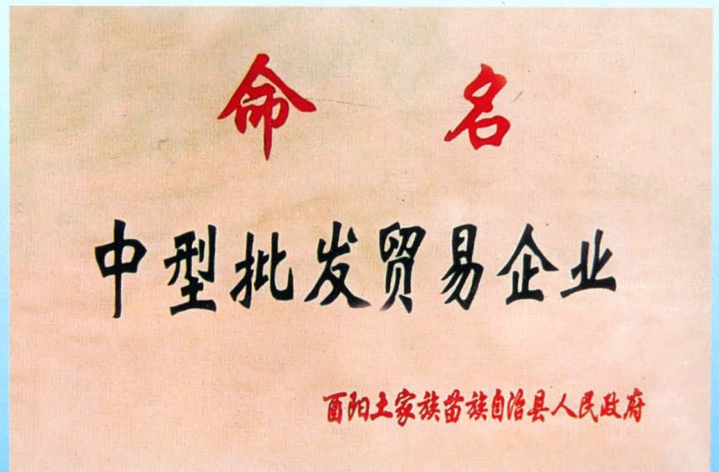 命名
中型批发贸易企业
酉阳土家族苗族自治县人民政府